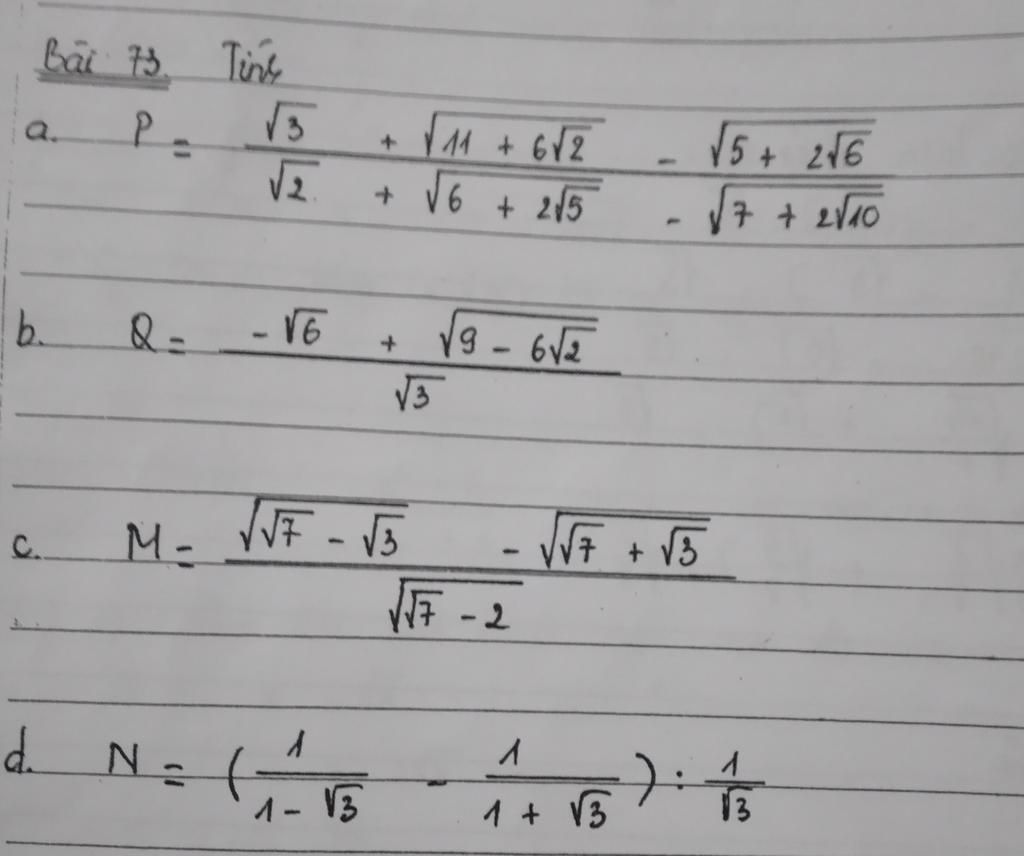 Bài 73. Tính
a. P = (√3 + √(11 + 6√2) - √(5 + 2√6)) / (√2 + √(6 + 2√5) - √(7 + 2√10))
b. Q = (-√6 + √(9 - 6√2)) / √3
c. M = (√(√7 - √3) - √(√7 + √3)) / √(√7 - 2)
d. N = (1 / (1 - √3) - 1 / (1 + √3)) : 1 / √3